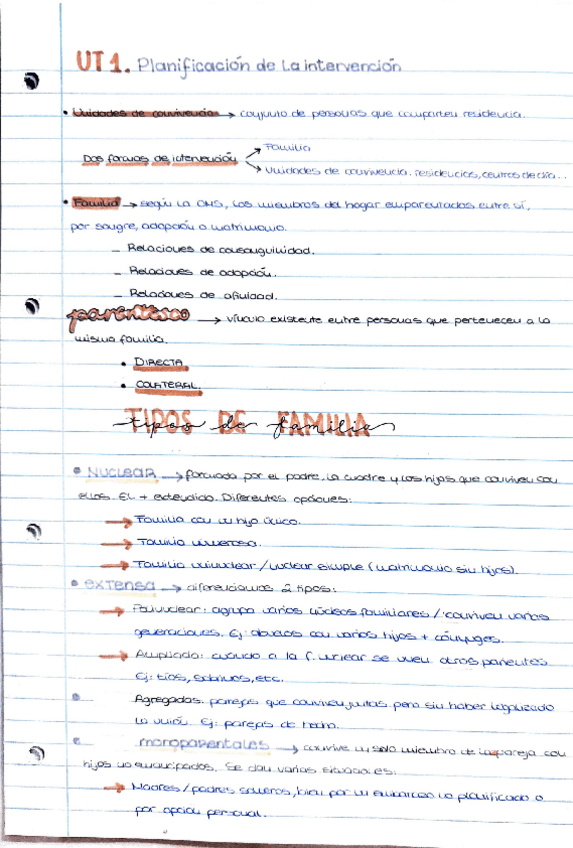 UT 1. Planificación de La intervención
• Unidades de convivencia → conjunto de personas que comparten residencia.
Dos formas de intervención → Familia
→ Unidades de convivencia: residencias, centros de día...
• Familia → según la OMS, los miembros del hogar emparentados entre sí,
por sangre, adopción o matrimonio.
– Relaciones de consanguinidad.
– Relaciones de adopción.
– Relaciones de afinidad.
parentesco → vínculo existente entre personas que pertenecen a la
misma familia.
• DIRECTA
• COLATERAL.
TIPOS DE FAMILIA
tipos de familia
• Nuclear → formada por el padre, la madre y los hijos que conviven con
ellos. El + extendido. Diferentes opciones:
→ Familia con un hijo único.
→ Familia numerosa.
→ Familia uninuclear / nuclear simple (matrimonio sin hijos).
• extensa → diferenciamos 2 tipos:
→ Polinuclear: agrupa varios núcleos familiares / conviven varias
generaciones. Ej: abuelos con varios hijos + cónyuges.
→ Ampliada: cuando a la f. nuclear se unen otros parientes
Ej: tíos, sobrinos, etc.
• Agregadas: parejas que conviven juntas pero sin haber legalizado
la unión. Ej: parejas de hecho.
• monoparentales → convive un solo miembro de la pareja con
hijos no emancipados. Se dan varias situaciones:
→ Madres / padres solteros, bien por un embarazo no planificado o
por opción personal.